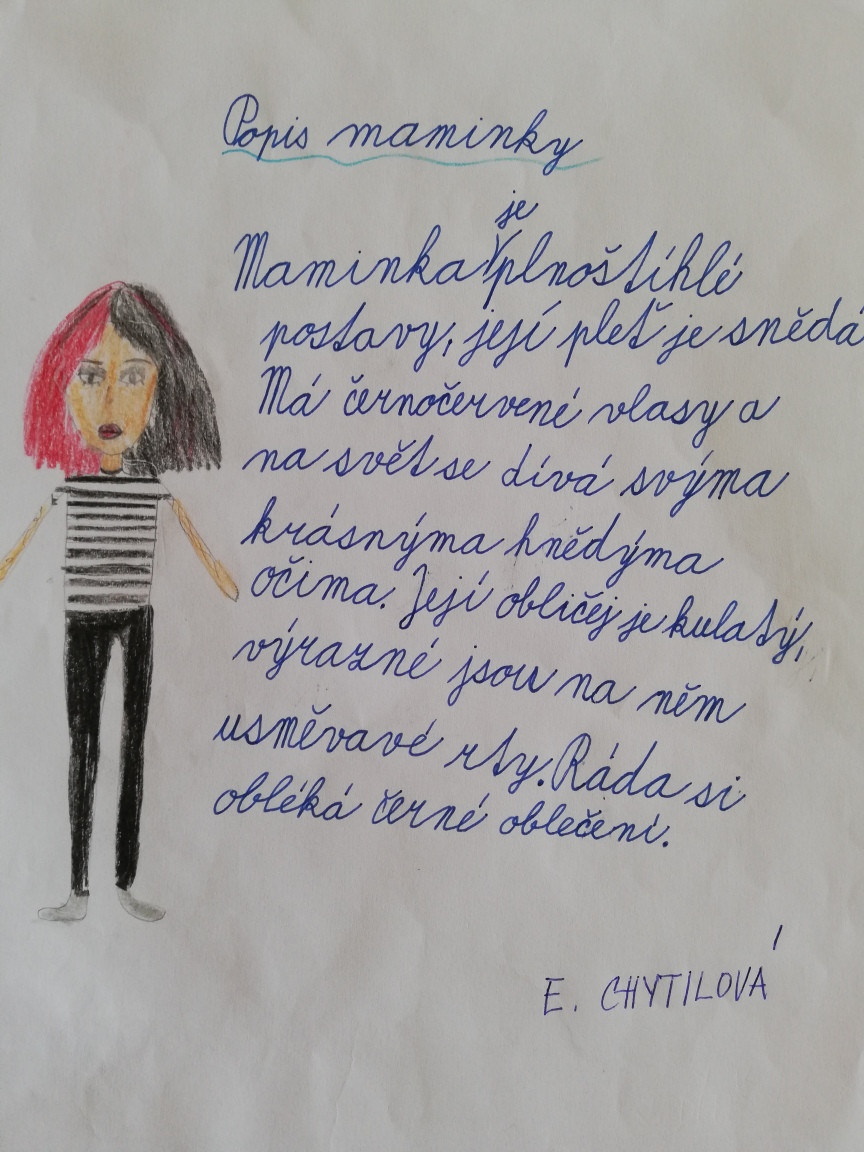 Popis maminky
je
Maminka plnoštíhlé
postavy, její pleť je snědá
Má černočervené vlasy a
na svět se dívá svýma
krásnýma hnědýma
očima. Její obličej je kulatý,
výrazné jsou na něm
usměvavé rty. Ráda si
obléká černé oblečení.
E. CHYTILOVÁ